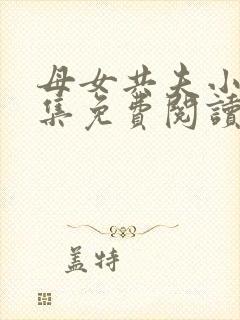 母女共夫小
集免費閱讀
盖特